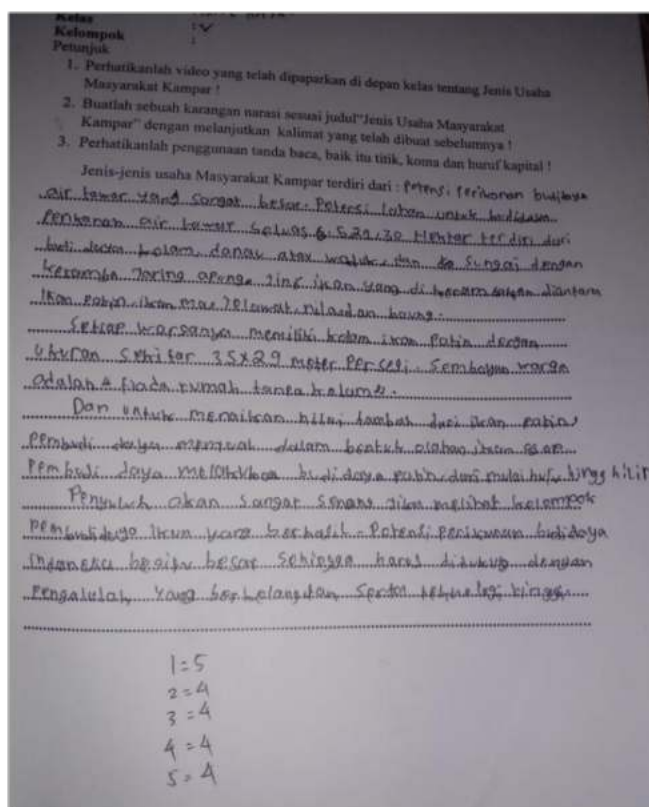 Kelas : V
Kelompok :
Petunjuk
1. Perhatikanlah video yang telah dipaparkan di depan kelas tentang Jenis Usaha
Masyarakat Kampar !
2. Buatlah sebuah karangan narasi sesuai judul"Jenis Usaha Masyarakat
Kampar" dengan melanjutkan kalimat yang telah dibuat sebelumnya !
3. Perhatikanlah penggunaan tanda baca, baik itu titik, koma dan huruf kapital !
Jenis-jenis usaha Masyarakat Kampar terdiri dari : Potensi Perikanan budidaya
air tawar yang sangat besar. Potensi lahan untuk
Perikanan air tawar seluas 6.521,30 Hektar terdiri dari
kolam, danau atau waduk, dan sungai dengan
keramba Jaring apung. ikan yang di diantara
ikan Patin, ikan Mas, nila dan baung.
Setiap warganya memiliki kolam ikan Patin dengan
Ukuran sekitar 35x29 meter Persegi. Semboyan warga
adalah tiada rumah tanpa kolam.
Dan untuk menaikan nilai tambah dari ikan patin,
Pembudi daya menjual dalam bentuk olahan ikan asap.
Pembudi daya melakukan budidaya patin dari mulai hulu hingg hilir
Penyuluh akan sangat senang jika melihat kelompok
ikan yang berhasil. Potensi Perikanan budidaya
Indonesia begitu besar sehingga harus dengan
yang teknologi tinggi.
1=5
2=4
3=4
4=4
5=4